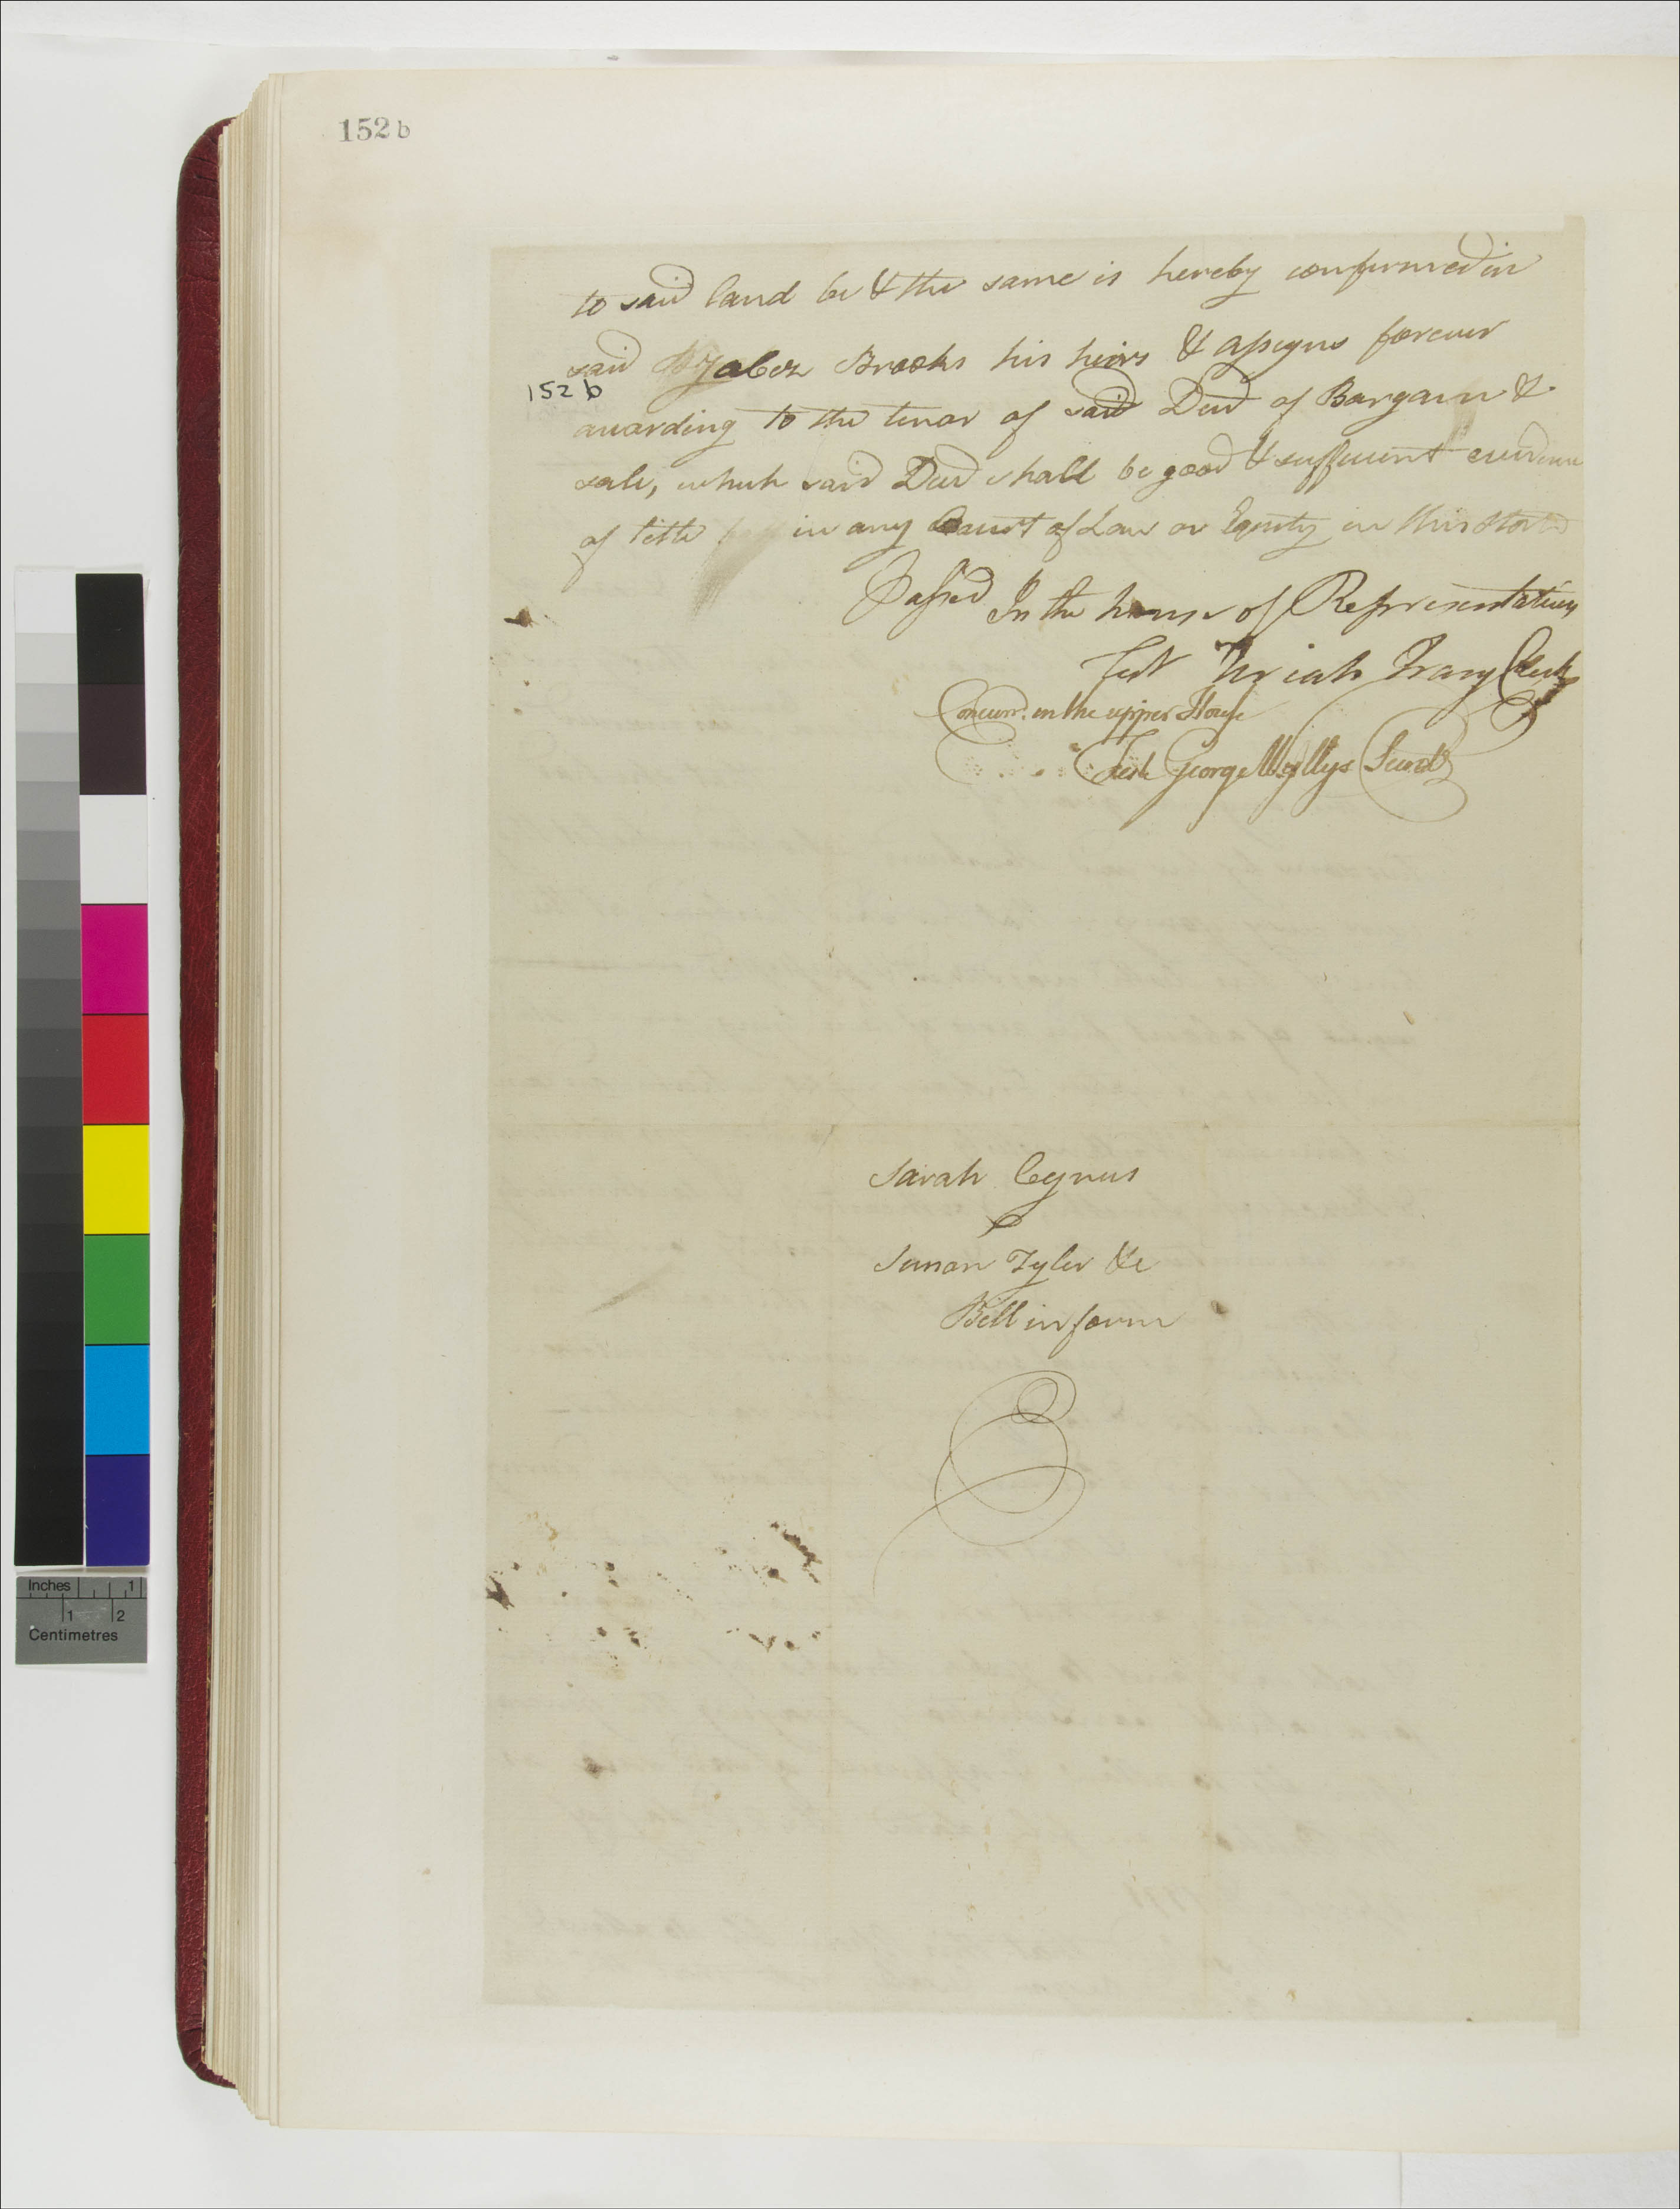 152 b
to said land be & the same is hereby confirmed in
said Jabez Brooks his heirs & assigns forever
152 b
according to the tenor of said Deed of Bargain &
sale, which said Deed shall be good & sufficient evidence
of title in any Court of Law or Equity in this State
Passed In the house of Representatives
Test Uriah Tracy Clerk
Concurrd. in the upper House
Test George Wyllys Secretr
Sarah Cyrus
Sunon Tyler &c
Bill in form
Inches 1
1 2
Centimetres